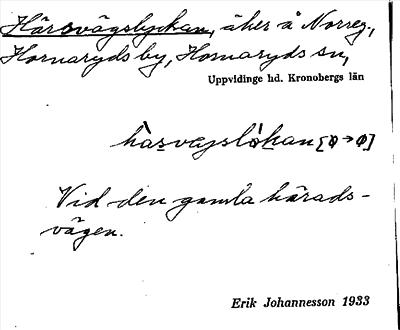 Härsvägslyckan, åker å Norreg.,
Hornaryds by, Hornaryds sn,
Uppvidinge hd. Kronobergs län
hàsvægsløkan [ø→ø]
Vid den gamla härads-
vägen.
Erik Johannesson 1933